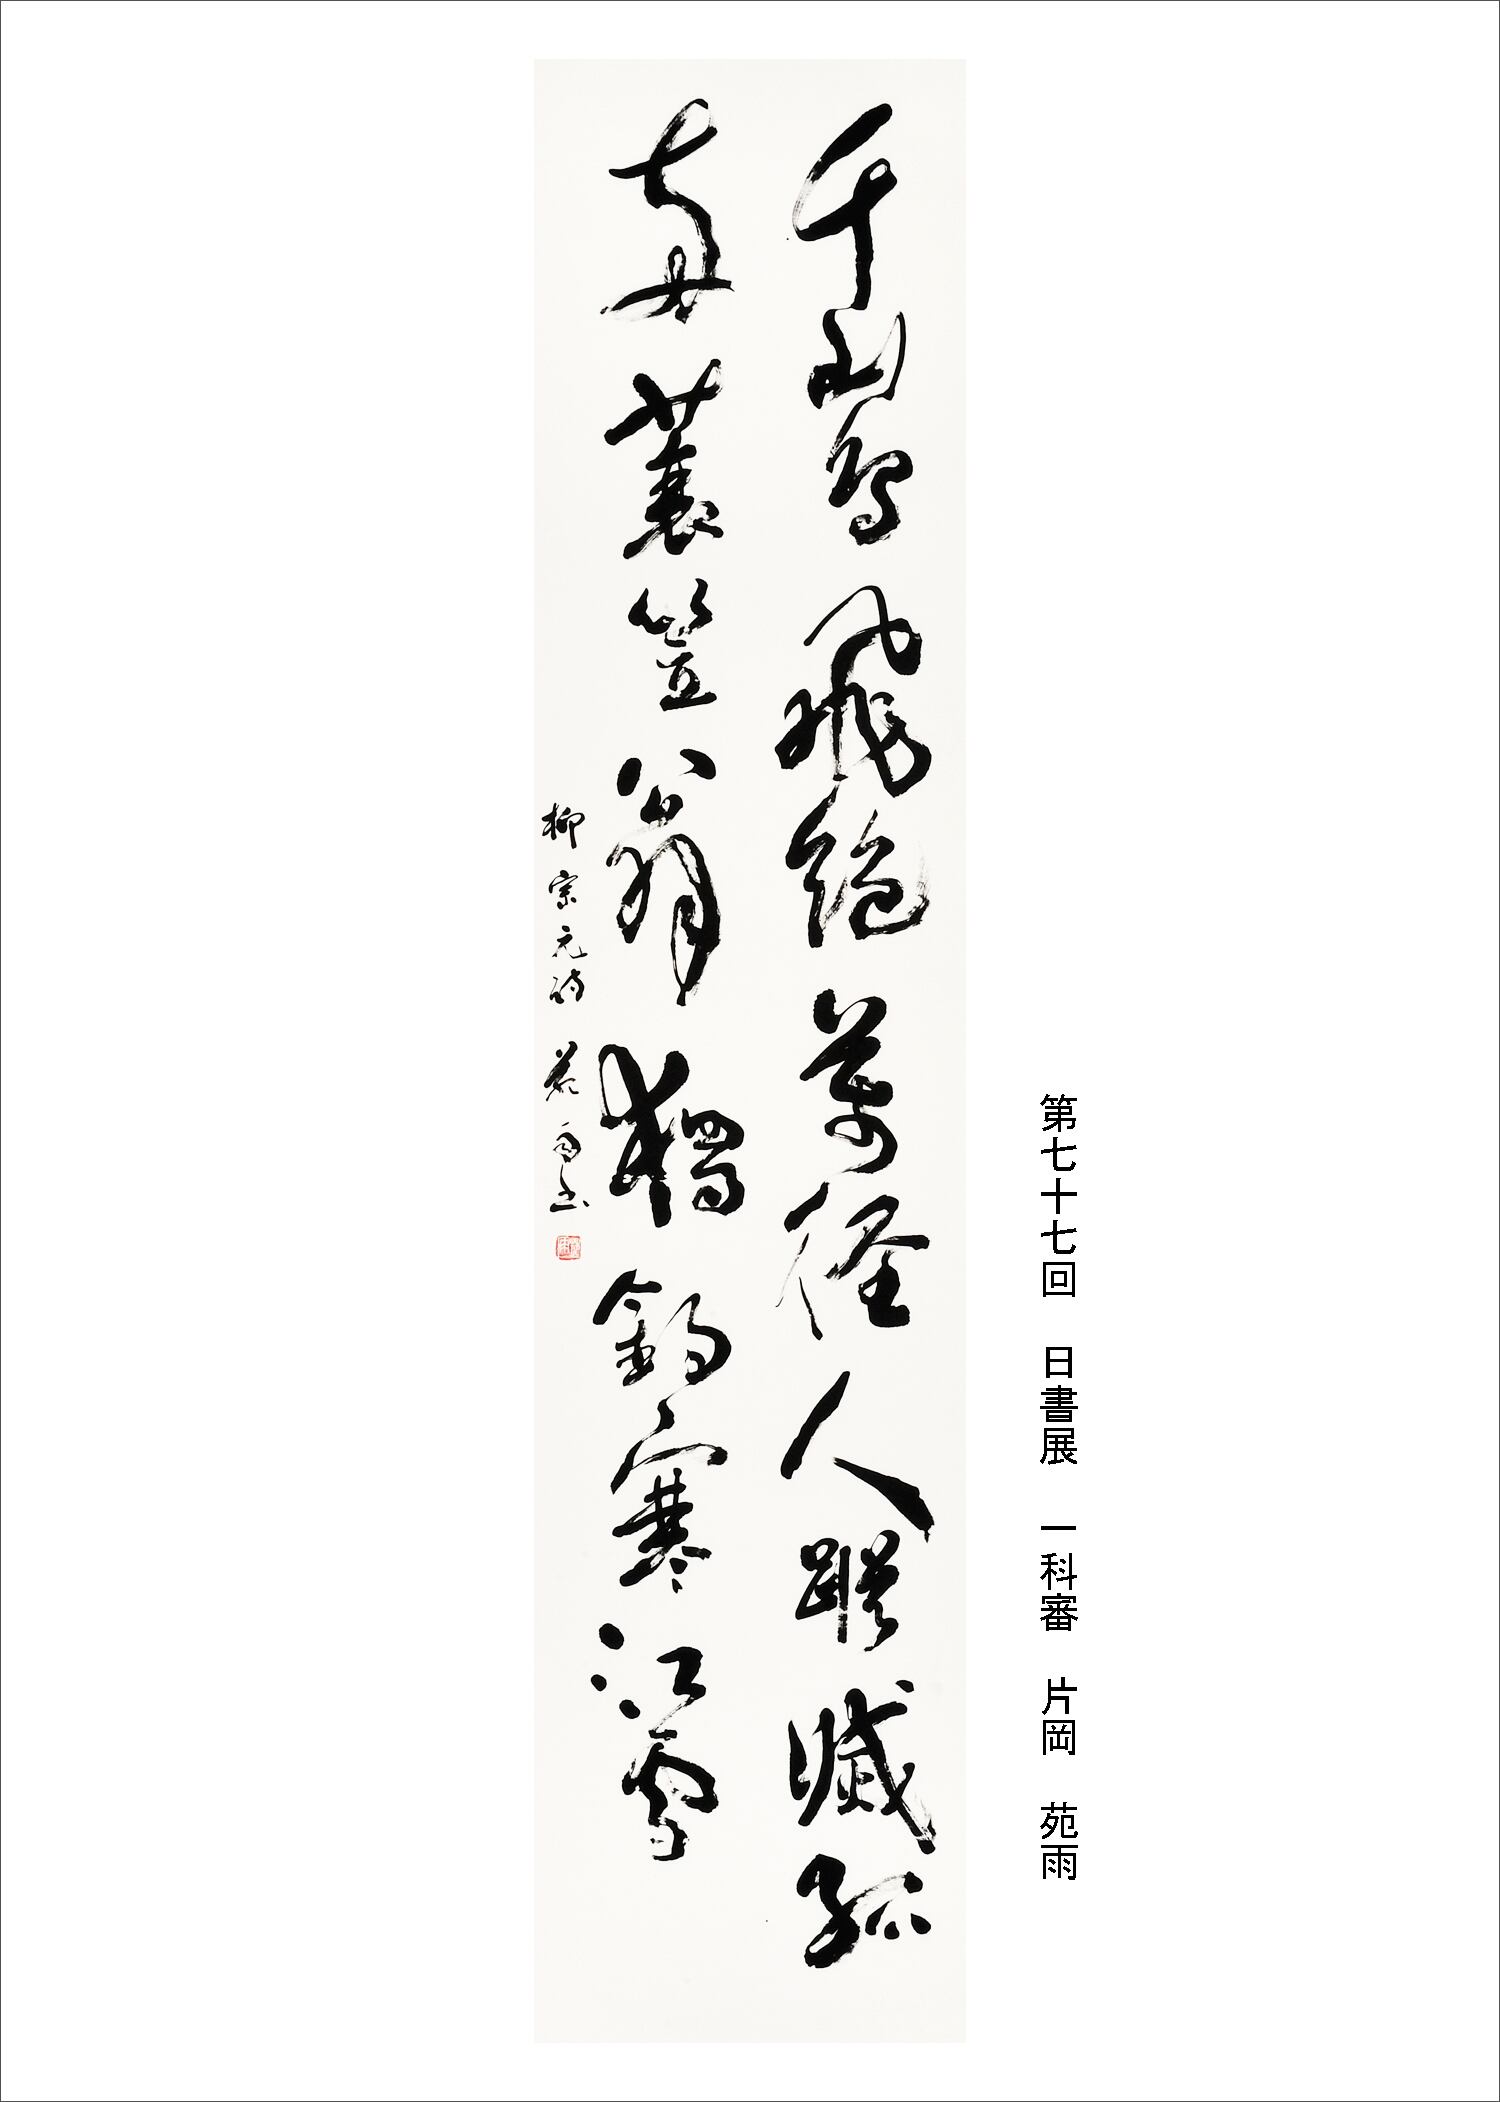 第七十七回　日書展　一科審　片岡　苑雨
千山鳥飛絶萬径人蹤滅孤
舟蓑笠翁獨釣寒江雪
柳宗元詩　苑雨书